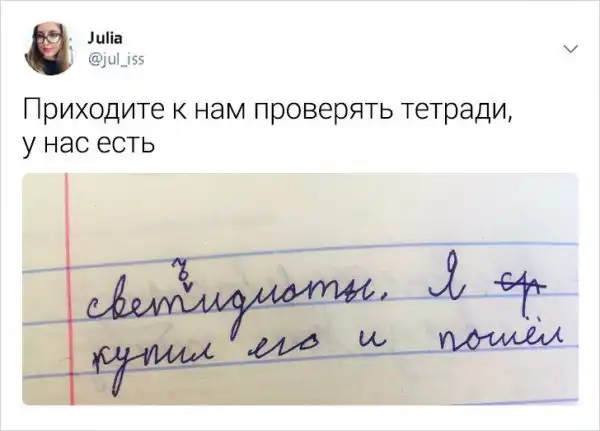 Julia
@jul_iss
Приходите к нам проверять тетради,
у нас есть
ъ
светидиоты. Я ср
купил его и пошёл